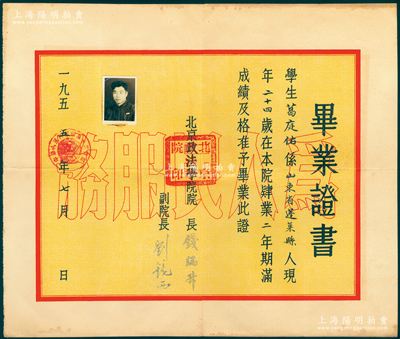 畢業證書
學生葛庭佑係山東省蓬萊縣人現
年二十四歲在本院肄業二年期滿
成績及格准予畢業此證
北京政法學院院長錢端升
副院長
一九五五年七月 日
為人民服務
上海陽明拍賣
上海陽明拍賣